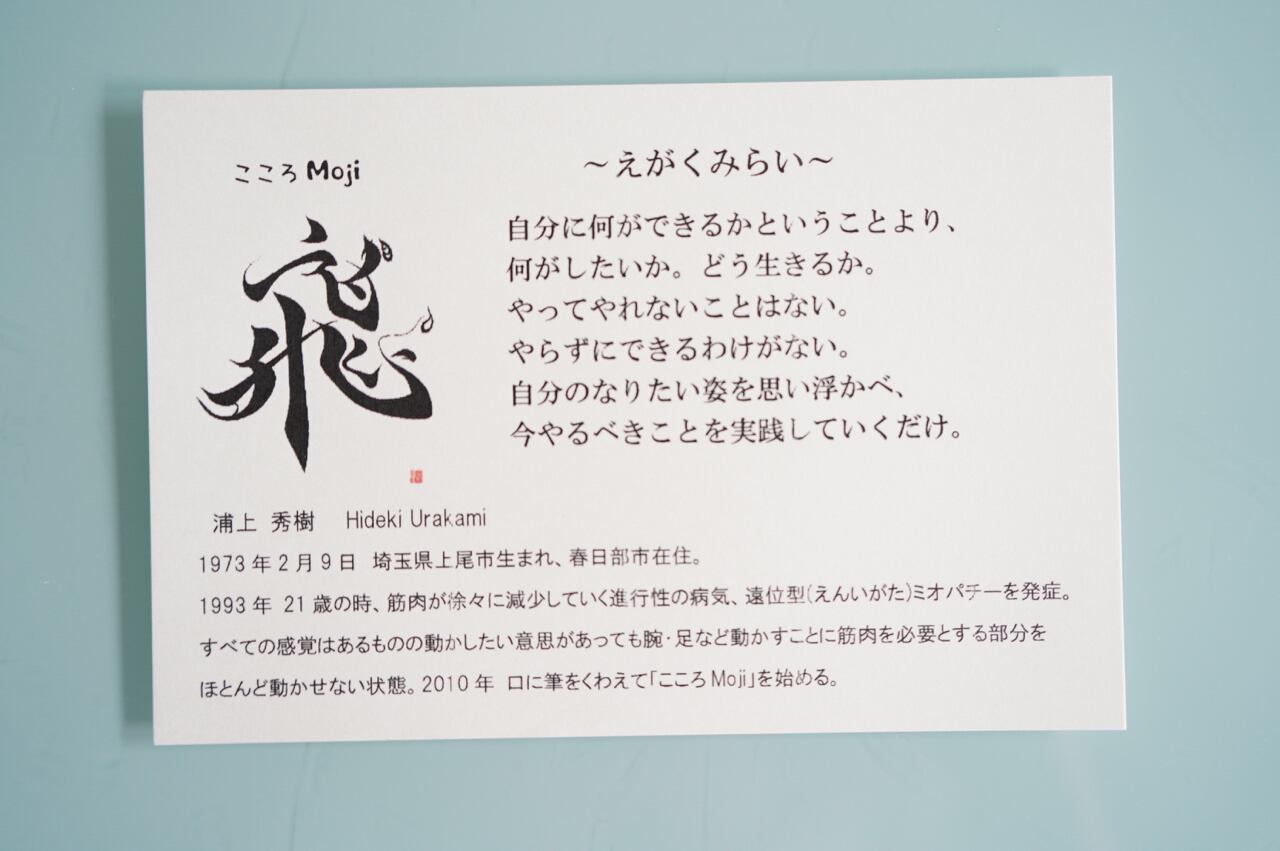 こころ Moji
飛
～えがくみらい～
自分に何ができるかということより、
何がしたいか。どう生きるか。
やってやれないことはない。
やらずにできるわけがない。
自分のなりたい姿を思い浮かべ、
今やるべきことを実践していくだけ。
浦上 秀樹　Hideki Urakami
1973 年 2 月 9 日　埼玉県上尾市生まれ、春日部市在住。
1993 年 21 歳の時、筋肉が徐々に減少していく進行性の病気、遠位型(えんいがた)ミオパチーを発症。
すべての感覚はあるものの動かしたい意思があっても腕・足など動かすことに筋肉を必要とする部分を
ほとんど動かせない状態。2010 年 口に筆をくわえて「こころ Moji」を始める。